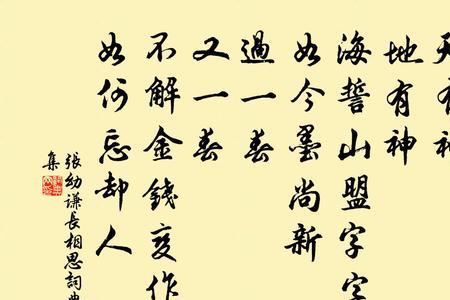 天有神
地有神
海誓山盟字字
如今墨尚新
過一春
又一春
不解金錢变作
如何忘却人
張幼謙長相思詞
集